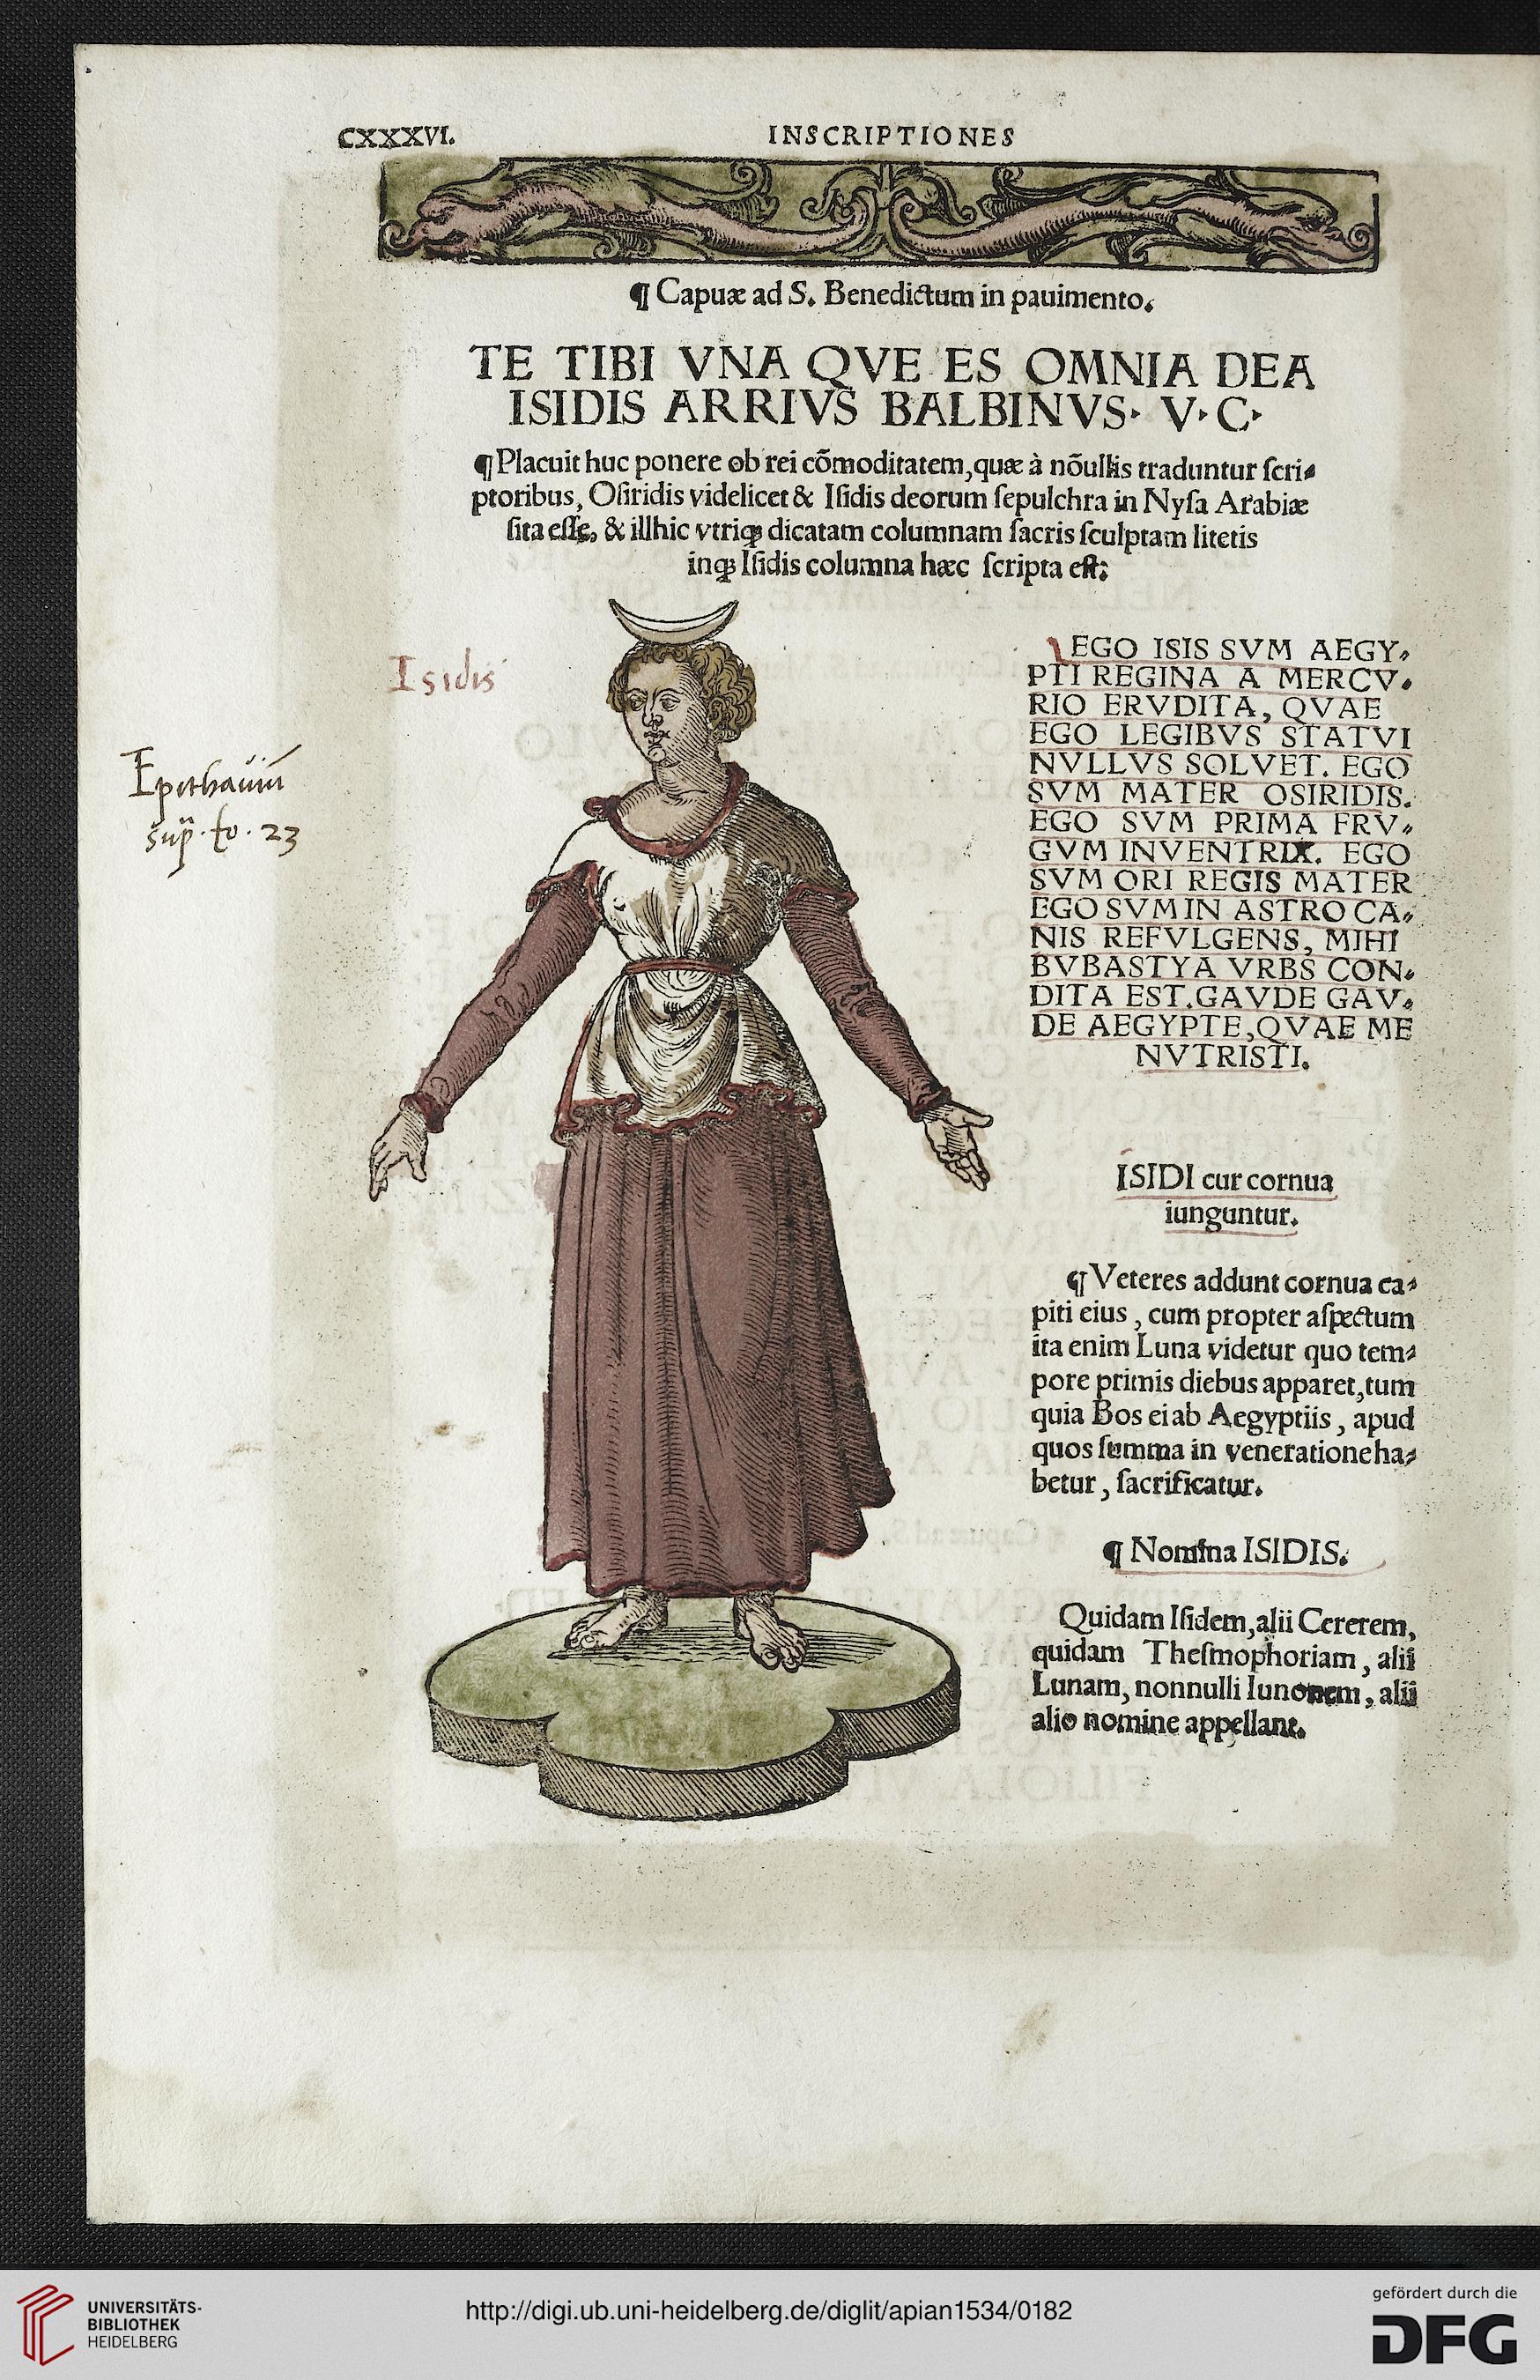 CXXXVI.
INSCRIPTIONES
¶ Capuæ ad S. Benedictum in pauimento.
TE TIBI VNA QVE ES OMNIA DEA
ISIDIS ARRIVS BALBINVS· V· C·
¶ Placuit huc ponere ob rei cõmoditatem, quæ à nõullis traduntur ſcri⸗
ptoribus, Oſiridis videlicet & Iſidis deorum ſepulchra in Nyſa Arabiæ
ſita eſſe, & illhic vtriqꝫ dicatam columnam ſacris ſculptam litetis
inqꝫ Iſidis columna hæc ſcripta eſt:
Isidis
Epithauiū
sup̄. fo. 23
EGO ISIS SVM AEGY⸗
PTI REGINA A MERCV⸗
RIO ERVDITA, QVAE
EGO LEGIBVS STATVI
NVLLVS SOLVET. EGO
SVM MATER OSIRIDIS.
EGO SVM PRIMA FRV⸗
GVM INVENTRIX. EGO
SVM ORI REGIS MATER
EGO SVM IN ASTRO CA⸗
NIS REFVLGENS, MIHI
BVBASTYA VRBS CON⸗
DITA EST. GAVDE GAV⸗
DE AEGYPTE, QVAE ME
NVTRISTI.
ISIDI cur cornua
iunguntur.
¶ Veteres addunt cornua ca⸗
piti eius, cum propter aſpectum
ita enim Luna videtur quo tem⸗
pore primis diebus apparet, tum
quia Bos ei ab Aegyptiis, apud
quos ſumma in veneratione ha⸗
betur, ſacrificatur.
¶ Nomina ISIDIS.
Quidam Iſidem, alii Cererem,
quidam Theſmophoriam, alii
Lunam, nonnulli Iunonem, alii
alio nomine appellant.
UNIVERSITÄTS-
BIBLIOTHEK
HEIDELBERG
http://digi.ub.uni-heidelberg.de/diglit/apian1534/0182
gefördert durch die
DFG